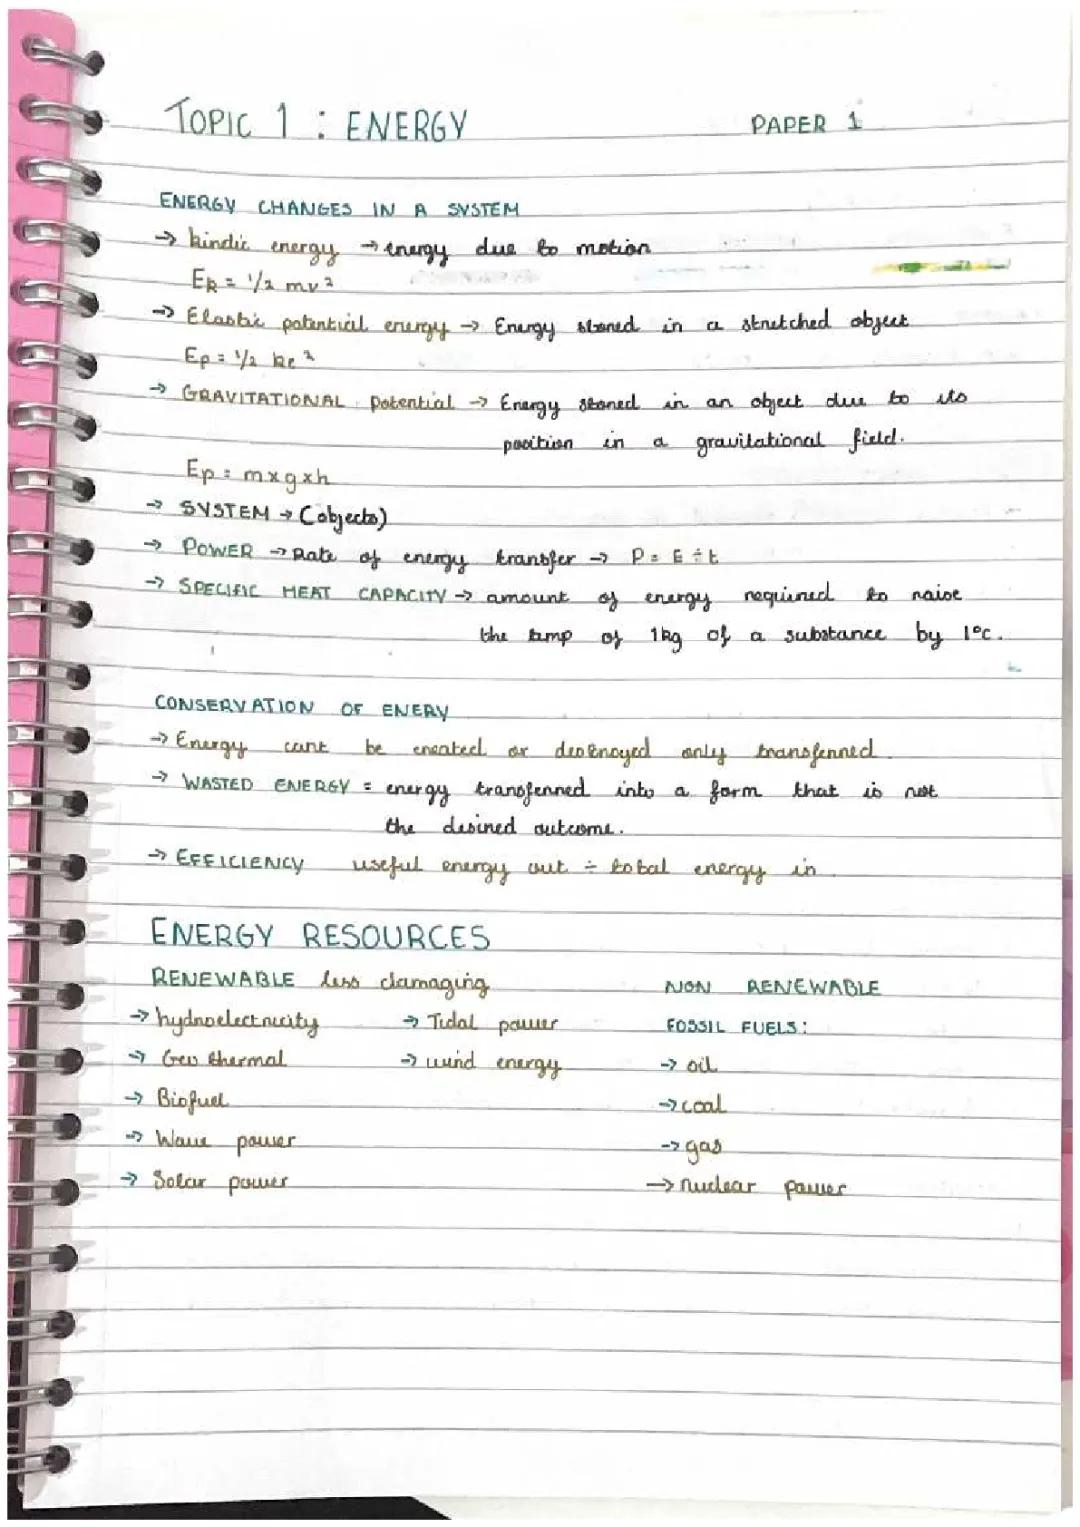 TOPIC 1 : ENERGY PAPER 1
ENERGY CHANGES IN A SYSTEM
→ kinetic energy → energy due to motion
Ek = 1/2 mv²
→ Elastic potential energy → Energy stored in a stretched object
Ep = 1/2 ke²
→ GRAVITATIONAL potential → Energy stored in an object due to its
position in a gravitational field.
Ep = mxgxh
→ SYSTEM → (objects)
→ POWER → Rate of energy transfer → P = E ÷ t
→ SPECIFIC HEAT CAPACITY → amount of energy required to raise
the temp of 1kg of a substance by 1°c.
CONSERVATION OF ENERY
→ Energy cant be created or destroyed only transferred.
→ WASTED ENERGY = energy transferred into a form that is not
the desired outcome.
→ EFFICIENCY useful energy out ÷ total energy in.
ENERGY RESOURCES
RENEWABLE less damaging NON RENEWABLE
→ hydroelectricity → Tidal power FOSSIL FUELS:
→ Geo thermal → wind energy → oil
→ Biofuel → coal
→ Wave power → gas
→ Solar power → nuclear power